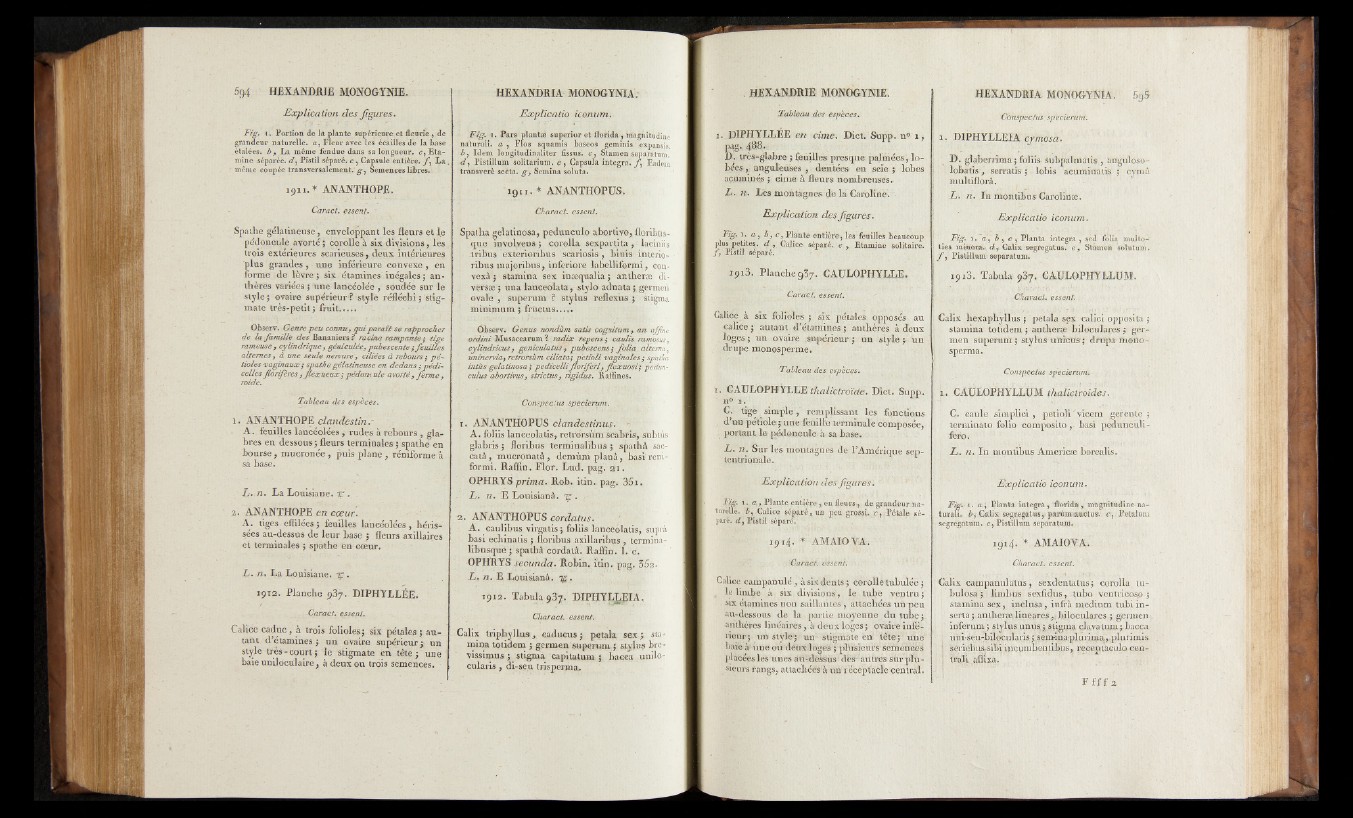 594 HEXANDRIE MONOGYNIE.
Explication des figures.
Fig. 1. Portion de la plante supérieure et fleurie, de
grandeur naturelle. a, Fleur avec les écailles de la base
étalées. b, La même fendue dans sa longueur. c, Eta-
mine séparée. d, Pistil séparé. e, Capsule entière. f, La
même coupée transversalement. g, Semences libres.
1911. * ANANTHOPE.
Caract. essent.
Spathe gélatineuse, enveloppant les fleurs et le
pédoncule avorté; corolle à six divisions, les
trois extérieures scarieuses, deux intérieures
plus grandes, une inférieure convexe, en
forme de lèvre; six étamines inégales; an-
thères variées; une lancéolée, soudée sur le
style; ovaire supérieur? style réfléchi; stig-
mate très-petit; fruit.....
Observ. Genre peu connu, qui paraît se rapprocher
de la famille des Bananiers? racine rampante; tige
rameuse, cylindrique, géniculée, pubescente; feuilles
alternes, à une seule nervure, ciliées à rebours; pé-
tioles vaginaux; spathe gélatineuse en dedans; pédi-
celles florifères, flexueux; pédoncule avorté, ferme,
roide.
Tableau des espèces.
1. ANANTHOPE clandestin.
A. feuilles lancéolées, rudes à rebours, gla-
bres en dessous; fleurs terminales; spathe en
bourse, mucronée, puis plane, réniforme à
sa base.
L. n. La Louisiane. ♃.
2. ANANTHOPE en cœur.
A. tiges effilées; feuilles lancéolées, héris-
sées au-dessus de leur base; fleurs axillaires
et terminales; spathe en cœur.
L. n. La Louisiane. ♃.
1912. Planche 937. DIPHYLLÉE.
Caract. essent.
Calice caduc, à trois folioles; six pétales; au-
tant d'étamines; un ovaire supérieur; un
style très-court; le stigmate en tête; une
baie uniloculaire, à deux ou trois semences.
HEXANDRIA MONOGYNIA.
Explicatio iconum.
Fig. 1. Pars plantæ superior et florida, magnitudine
naturali. a, Flos squamis baseos geminis expansis.
b, Idem longitudinaliter fissus. c, Stamen separatum.
d, Pistillum solitarium. e, Capsula integra. f, Eadem
transversè secta. g, Semina soluta.
1911. * ANANTHOPUS.
Charact. essent.
Spatha gelatinosa, pedunculo abortivo, floribus-
que involvens; corolla sexpartita, laciniis
tribus exterioribus scariosis, binis interio-
ribus majoribus, inferiore labelliformi, con-
vexâ; stamina sex inæqualia; antheræ di-
versæ; una lanceolata, stylo adnata; germen
ovale, superum? stylus reflexus; stigma
minimum; fructus.....
Observ. Genus nondùm satis cognitum, an affine
ordini Musacearum? radix repens; caulis ramosus,
cylindricus, geniculatus, pubescens; folia alterna,
uninervia, retrorsùm ciliata; petioli vaginales; spatha
intùs gelatinosa; pedicelli floriferi, flexuosi; pedun-
culus abortivus, strictus, rigidus. Raffines.
Conspectus specierum.
1. ANANTHOPUS clandestinus.
A. foliis lanceolatis, retrorsùm scabris, subtùs
glabris; floribus terminalibus; spathâ sac-
catâ, mucronatâ, demùm planâ, basi reni-
formi. Raffin. Flor. Lud. pag. 21.
OPHRYS prima. Rob. itin. pag. 351.
L. n. E Louisianâ. ♃.
2. ANANTHOPUS cordatus.
A. caulibus virgatis; foliis lanceolatis, suprà
basi echinatis; floribus axillaribus, termina-
libusque; spathâ cordatâ. Raffin. l. c.
OPHRYS secunda. Robin. itin. pag. 352.
L. n. E Louisianâ. ♃.
1912. Tabula 937. DIPHYLLEIA.
Charact. essent.
Calix triphyllus, caducus; petala sex; sta-
mina totidem; germen superum; stylus bre-
vissimus; stigma capitatum; bacca unilo-
cularis, di-seu trisperma.
HEXANDRIE MONOGYNIE.
Tableau des espèces.
1. DIPHYLLÉE en cime. Dict. Supp. n° 1,
pag. 488.
D. très-glabre; feuilles presque palmées, lo-
bées, anguleuses, dentées en scie; lobes
acuminés; cime à fleurs nombreuses.
L. n. Les montagnes de la Caroline.
Explication des figures.
Fig. 1. a, b, c, Plante entière, les feuilles beaucoup
plus petites. d, Calice séparé. e, Etamine solitaire.
f, Pistil séparé.
1913. Planche 937. CAULOPHYLLE.
Caract. essent.
Calice à six folioles; six pétales opposés au
calice; autant d'étamines; anthères à deux
loges; un ovaire supérieur; un style; un
drupe monosperme.
Tableau des espèces.
1. CAULOPHYLLE thalictroïde. Dict. Supp.
n° 1.
C. tige simple, remplissant les fonctions
d'un pétiole; une feuille terminale composée,
portant le pédoncule à sa base.
L. n. Sur les montagnes de l'Amérique sep-
tentrionale.
Explication des figures.
Fig. 1. a, Plante entière, en fleurs, de grandeur na-
turelle. b, Calice séparé, un peu grossi. c, Pétale sé-
paré. d, Pistil séparé.
1914. * AMAIOVA.
Caract. essent.
Calice campanulé, à six dents; corolle tubulée;
le limbe à six divisions, le tube ventru;
six étamines non saillantes, attachées un peu
au-dessous de la partie moyenne du tube;
anthères linéaires, à deux loges; ovaire infé-
rieur; un style; un stigmate en tête; une
baie à une ou deux loges; plusieurs semences
placées les unes au-dessus des autres sur plu-
sieurs rangs, attachées à un réceptacle central.
HEXANDRIA MONOGYNIA. 595
Conspectus specierum.
1. DIPHYLLEIA cymosa.
D. glaberrima; foliis subpalmatis, anguloso-
lobatis, serratis; lobis acuminatis; cymâ
multiflorâ.
L. n. In montibus Carolinæ.
Explicatio iconum.
Fig. 1. a, b, c, Planta integra, sed folia multo-
ties minora. d, Calix segregatus. e, Stamen solutum.
f, Pistillum separatum.
1913. Tabula 937. CAULOPHYLLUM.
Charact. essent.
Calix hexaphyllus; petala sex calici opposita;
stamina totidem; antheræ biloculares; ger-
men superum; stylus unicus; drupa mono-
sperma.
Conspectus specierum.
1. CAULOPHYLLUM thalictroides.
C. caule simplici, petioli vicem gerente;
terminato folio composito, basi pedunculi-
fero.
L. n. In montibus Americæ borealis.
Explicatio iconum.
Fig. 1. a, Planta integra, florida, magnitudine na-
turali. b, Calix segregatus, parùm auctus. c, Petalum
segregatum. d, Pistillum separatum.
1914. * AMAIOVA.
Charact. essent.
Calix campanulatus, sexdentatus; corolla tu-
bulosa; limbus sexfidus, tubo ventricoso;
stamina sex, inclusa, infrà medium tubi in-
serta; antheræ lineares, biloculares; germen
inferum; stylus unus; stigma clavatum; bacca
uni-seu-bilocularis; semina plurima, plurimis
seriebus sibi incumbentibus, receptaculo cen-
trali affixa.
F fff 2